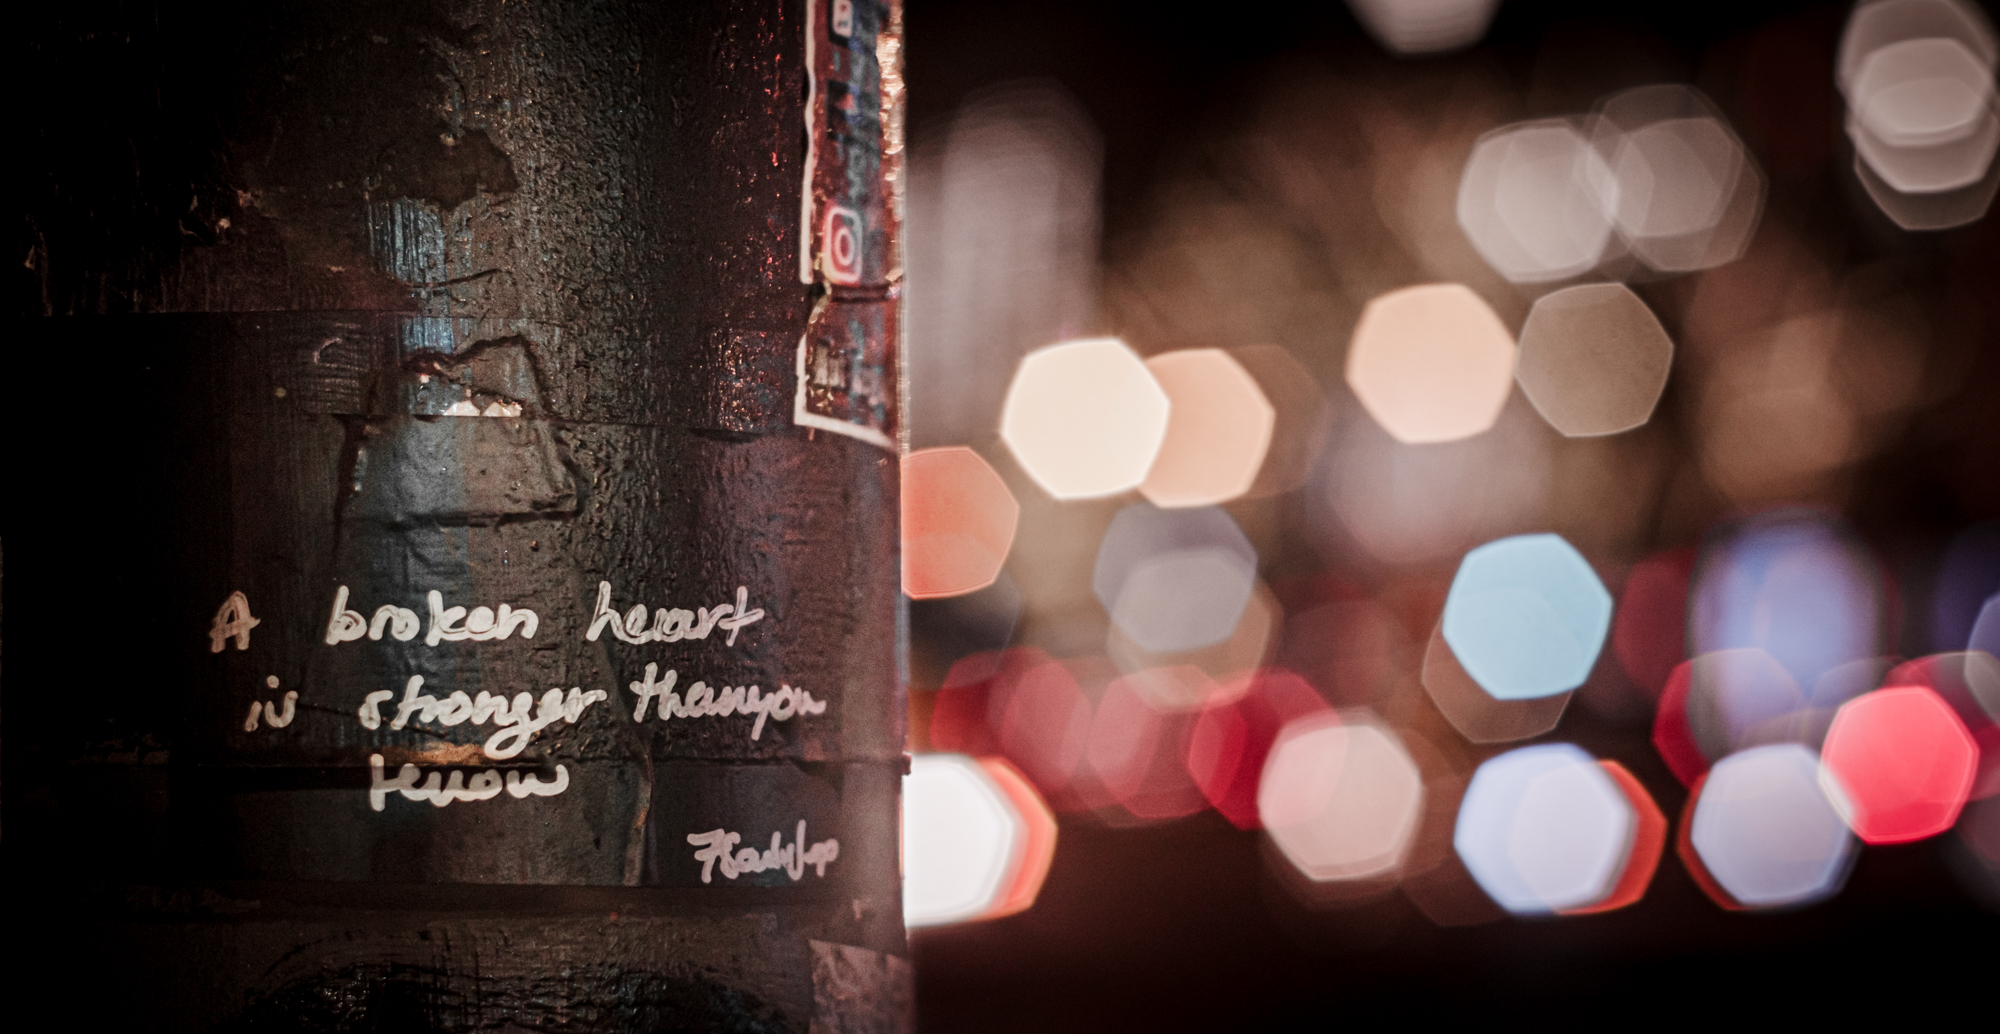 A broken heart
is stronger than you
know